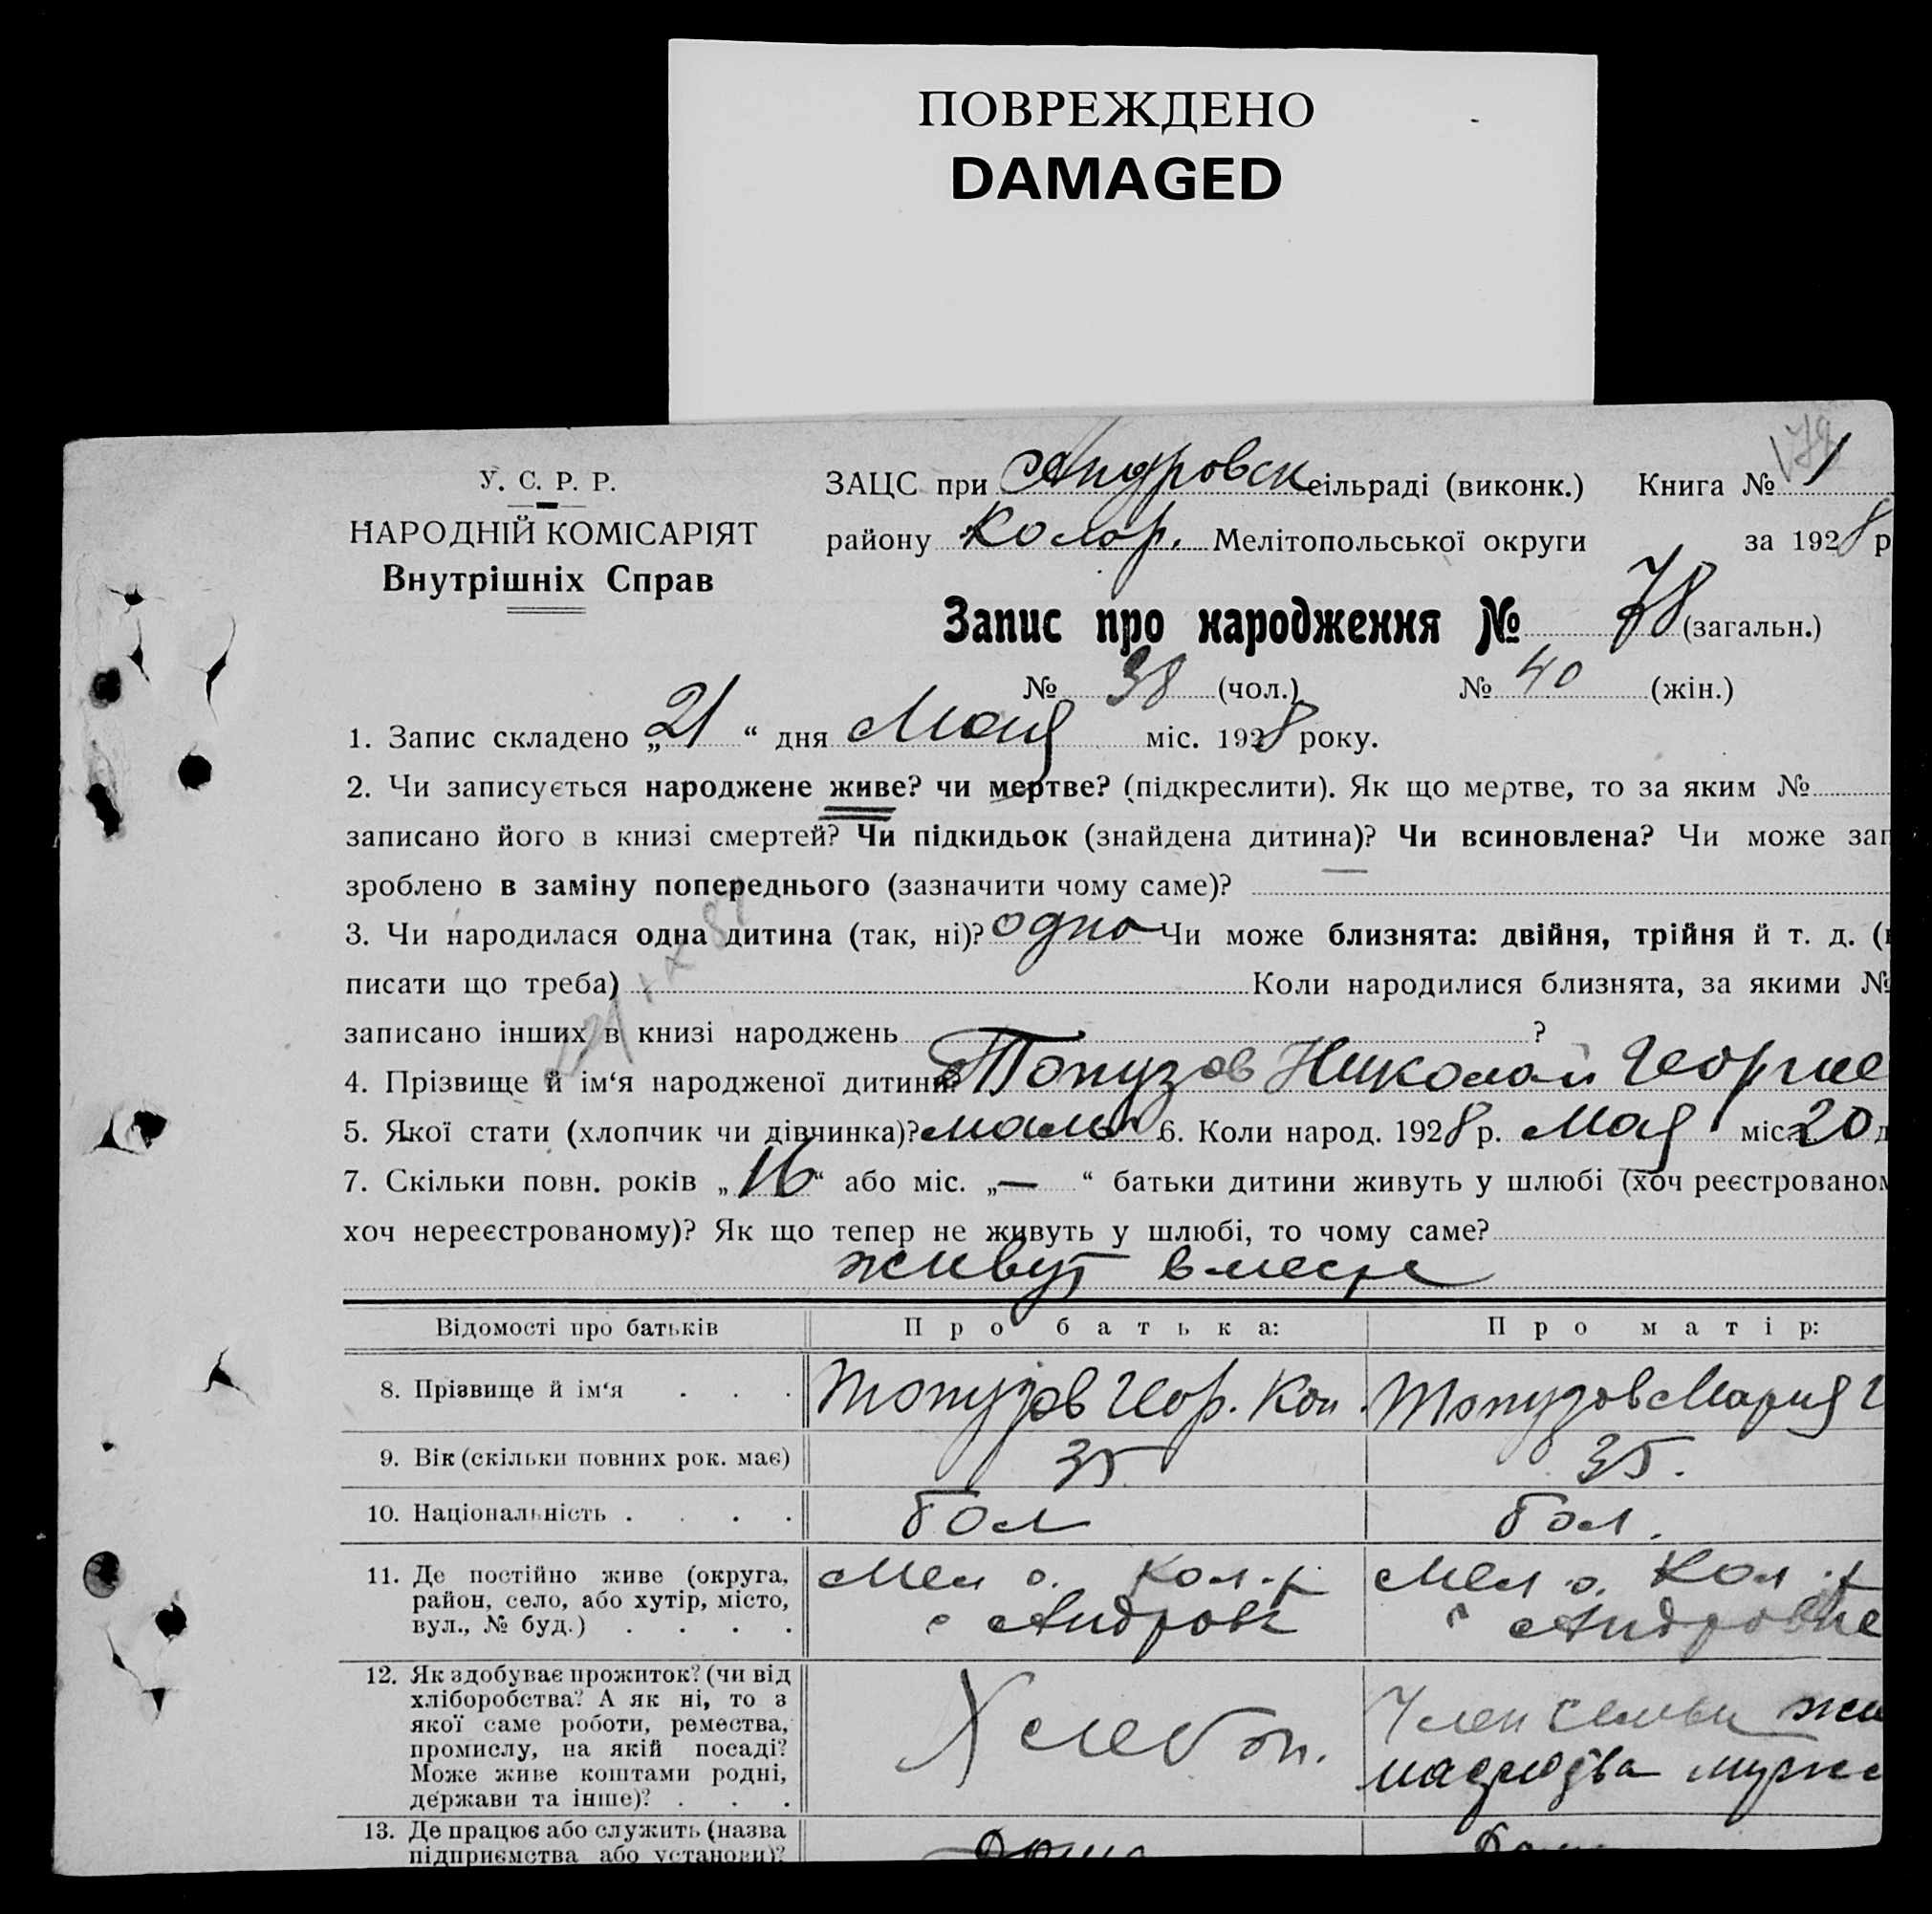 ПОВРЕЖДЕНО
DAMAGED
У. С. Р. Р.
НАРОДНІЙ КОМІСАРІЯТ
Внутрішніх Справ
ЗАЦС при Андровск сільраді (виконк.) Книга № 1
району Колар. Мелітопольської округи за 1928 р
Запис про народження № 78 (загальн.)
№ 38 (чол.) № 40 (жін.)
1. Запис складено „21“ дня Мая міс. 1928 року.
2. Чи записується народжене живе? чи мертве? (підкреслити). Як що мертве, то за яким №
записано його в книзі смертей? Чи підкидьок (знайдена дитина)? Чи всиновлена? Чи може зап
зроблено в заміну попереднього (зазначити чому саме)? —
3. Чи народилася одна дитина (так, ні)? одна Чи може близнята: двійня, трійня й т. д. (
писати що треба) Коли народилися близнята, за якими №
записано інших в книзі народжень ?
4. Прізвище й ім‘я народженої дитини? Топузов Николай Георгие
5. Якої стати (хлопчик чи дівчинка)? мальч 6. Коли народ. 1928 р. Мая міс. 20 д
7. Скільки повн. років „16“ або міс. „—“ батьки дитини живуть у шлюбі (хоч реєстрованом
хоч нереєстрованому)? Як що тепер не живуть у шлюбі, то чому саме?
живут вместе
Відомості про батьків Про батька: Про матір:
8. Прізвище й ім‘я . . . Топузов Геор. Кон. Топузов Мария Г
9. Вік (скільки повних рок. має) 35 35.
10. Національність . . . . бол бол.
11. Де постійно живе (округа, Мел о. Кол. р Мел. о. Кол. р
район, село, або хутір, місто, с Андровк с Андровке
вул., № буд.) . . . .
12. Як здобуває прожиток? (чи від
хліборобства? А як ні, то з
якої саме роботи, ремества, Хлебоп. Член семьи жи
промислу, на якій посаді?
Може живе коштами родні, на средства мужа
держави та інше)? . . .
13. Де працює або служить (назва
підприємства або установи)? Дома Дома